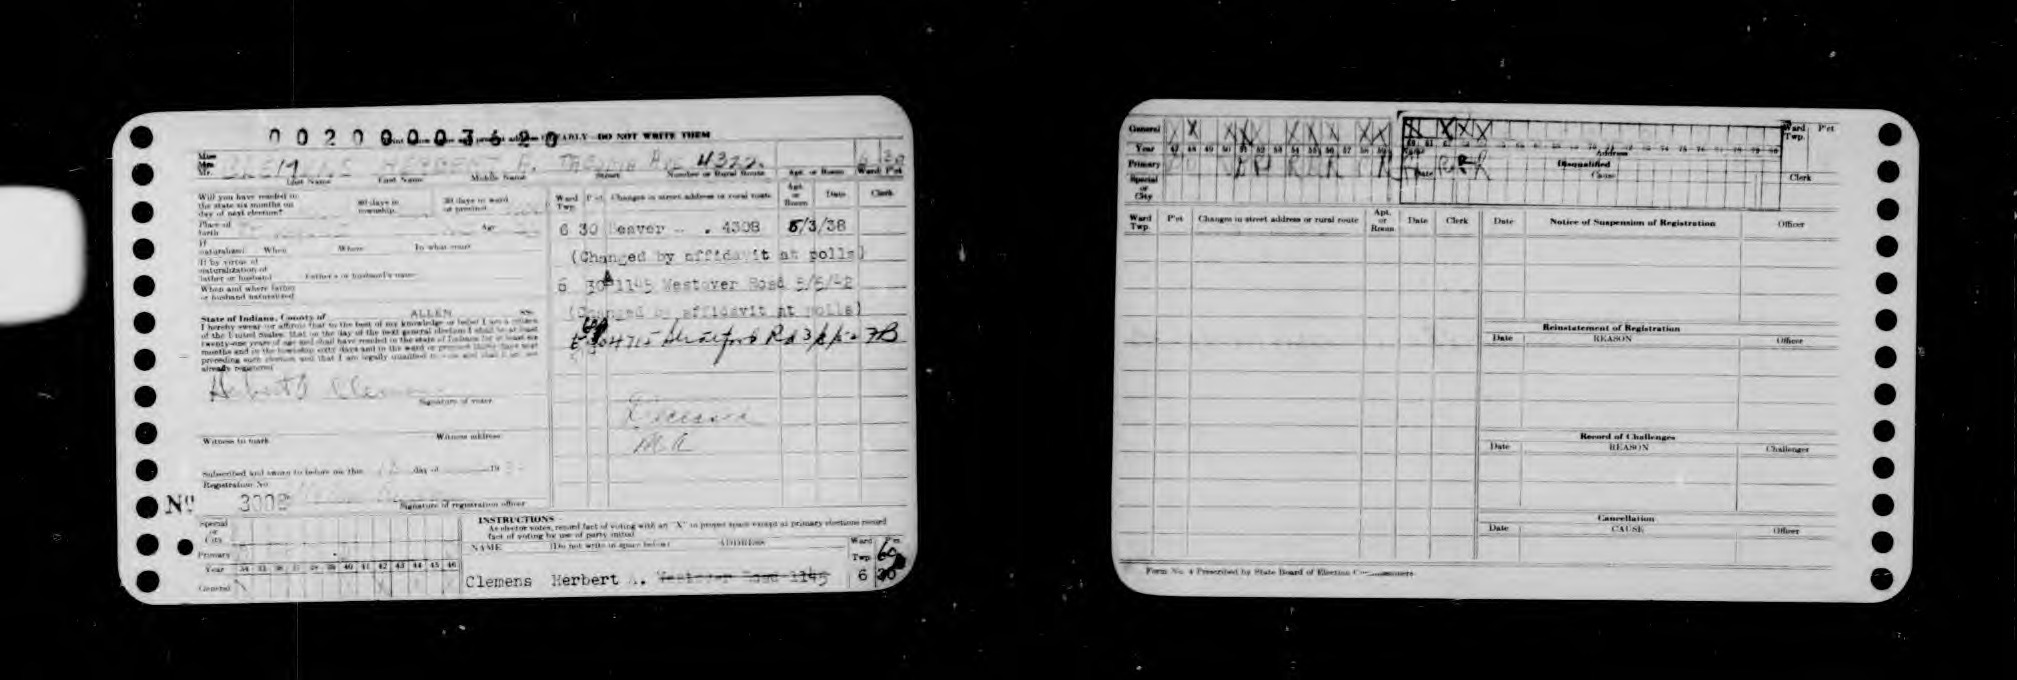 0020003620
EARLY—DO NOT WRITE THEM
Miss
Mrs.
Mr.
HERBERT A. 4322
Last Name First Name Middle Name Street Number or Rural Route Apt. or Room Ward P'ct
Will you have resided in
the state six months on
day of next election?
60 days in
township
30 days in ward
or precinct
Place of
birth
Age
If
naturalized When Where In what court
If by virtue of
naturalization of
father or husband Father's or husband's name
When and where father
or husband naturalized
State of Indiana, County of ALLEN ss:
I hereby swear (or affirm) that to the best of my knowledge or belief I am a citizen
of the United States, that on the day of the next general election I shall be at least
twenty-one years of age and shall have resided in the state of Indiana for at least six
months and in the township sixty days and in the ward or precinct thirty days next
preceding such election and that I am legally qualified to vote and shall
already registered
Herbert A Clemens
Signature of voter
Witness to mark Witness address
Subscribed and sworn to before me this day of 19
Registration No.
No 3002
Signature of registration officer
Ward
Twp. P'ct Changes in street address or rural route Apt.
or
Room Date Clerk
6 30 Beaver 4308 5/3/38
(Changed by affidavit at polls)
6 30 1145 Westover Road 5/5/42
(Changed by affidavit at polls)
4715 Stratford Rd
Deceased
Special
or
City
Primary
Year 34 35 36 37 38 39 40 41 42 43 44 45 46
General
INSTRUCTIONS
As elector votes, record fact of voting with an "X" in proper space except at primary elections record
fact of voting by use of party initial
NAME (Do not write in space below) ADDRESS Ward
Twp. P'ct
Clemens Herbert A. Westover Road 1145 6 30
General
Year 47 48 49 50 51 52 53 54 55 56 57 58 59
Primary
Special
or
City
Address
Disqualified
Date Cause Clerk
Ward
Twp. P'ct
Ward
Twp. P'ct Changes in street address or rural route Apt.
or
Room Date Clerk
Date Notice of Suspension of Registration Officer
Reinstatement of Registration
Date REASON Officer
Record of Challenges
Date REASON Challenger
Cancellation
Date CAUSE Officer
Form No. 4 Prescribed by State Board of Election Commissioners